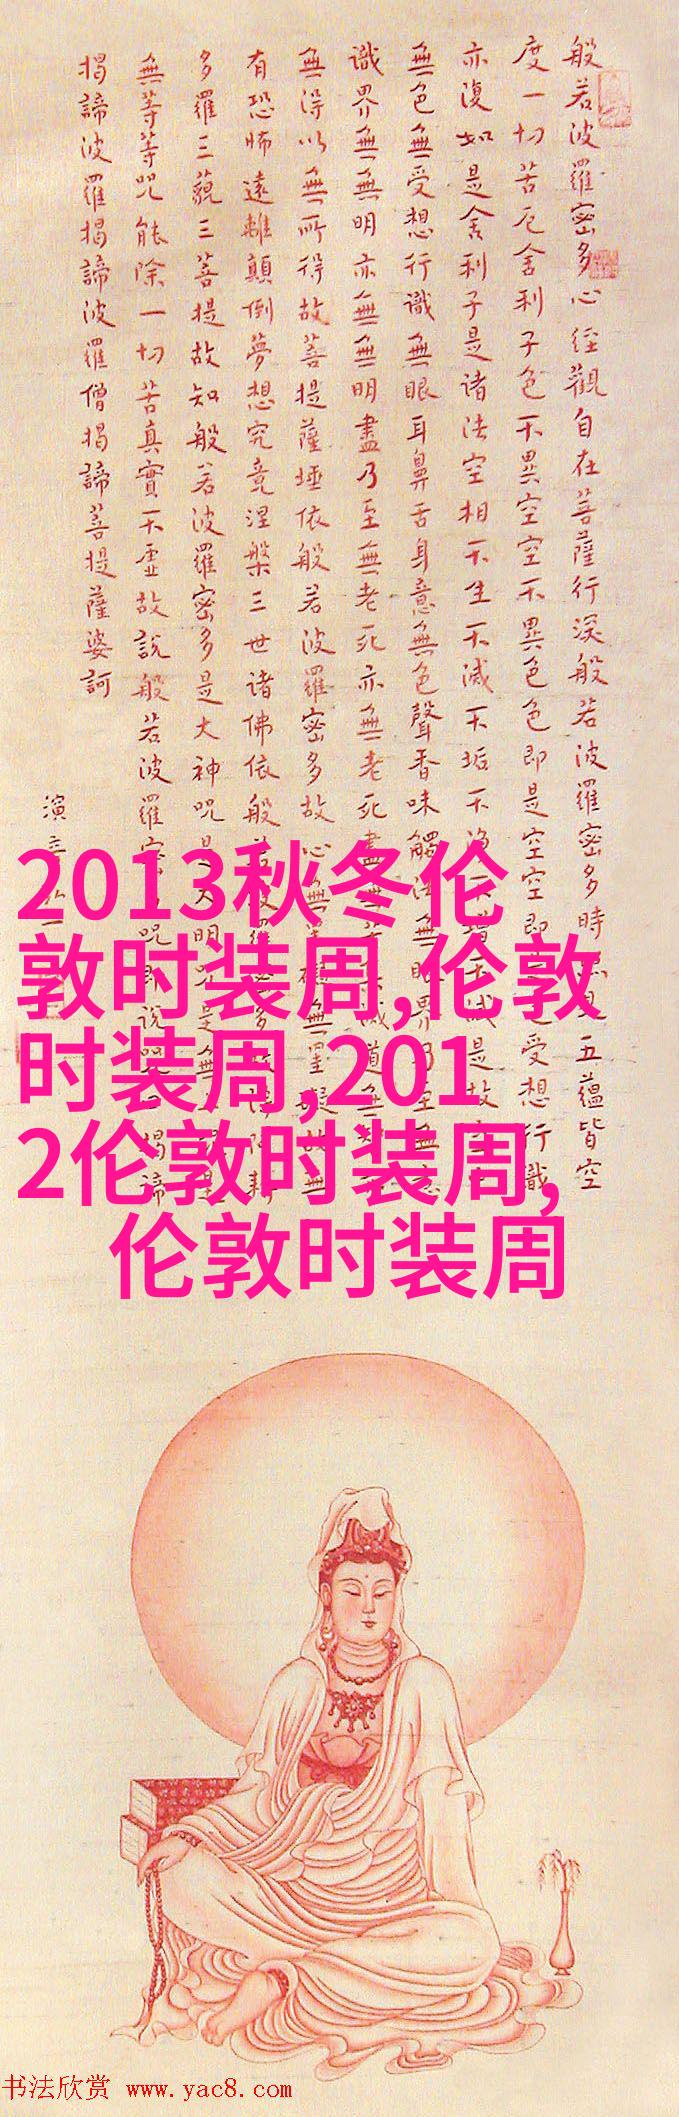 般若波羅密多心经觀自在菩薩行深般若波羅密多時見五蘊皆空
度一切苦厄舍利子色不異空空不異色色即是空空即受想行識
亦復如是舍利子是诸法空相不生不滅不垢不淨不增不減是故空
無色無受想行識無眼耳鼻舌身意無色聲香味觸法無眼界乃至無意
識界無無明亦無無明盡乃至無老死亦無老死盡無滅道無
無得以無所得故菩提薩埵依般若波羅密多故心無無罣礙故無
有恐怖遠離顛倒夢想究竟涅槃三世诸佛依般若波羅密多故得耨
多羅三藐三菩提故知般若波羅密多是大神咒是大明咒是無是
無等等咒能除一切苦真實不虛故說般若波羅密咒即說咒揭諦
揭諦波羅揭諦波羅僧揭諦菩提薩婆訶
演音
2013秋冬伦
敦时装周,伦敦
时装周,201
2伦敦时装周,
伦敦时装周
书法欣赏 www.yac8.com